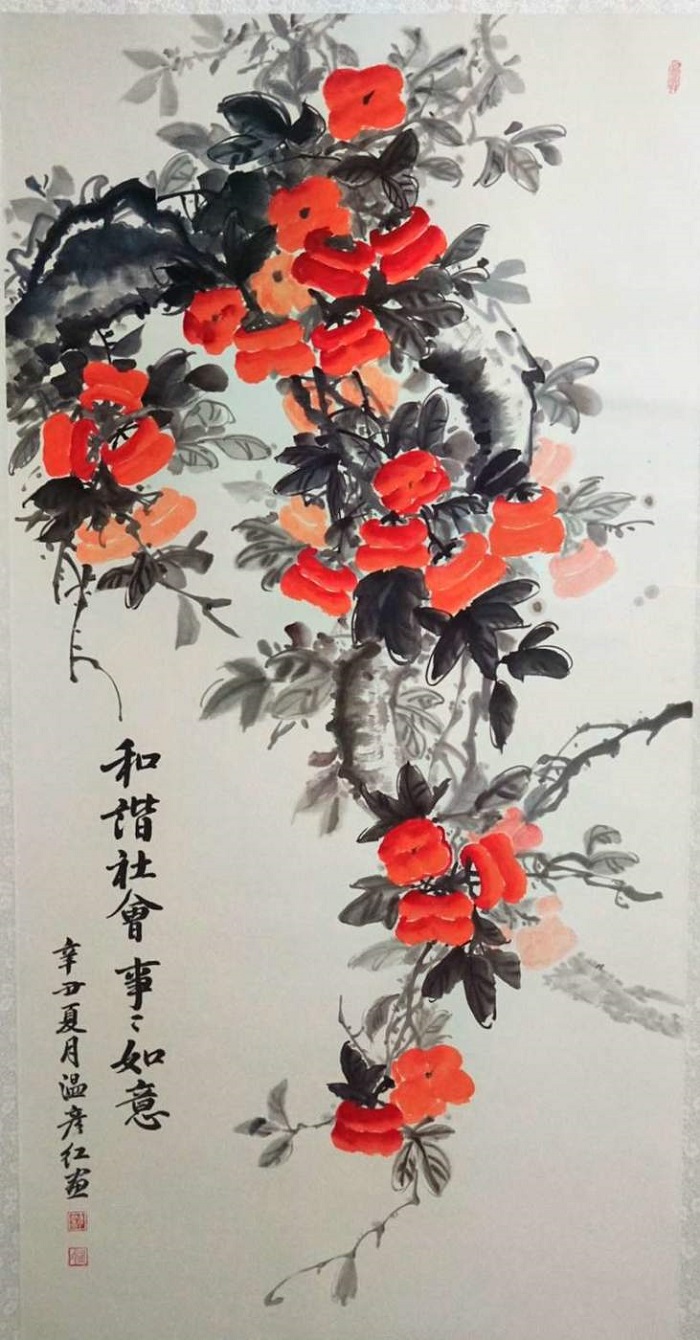 和谐社會事〻如意
辛丑夏月温彦红画